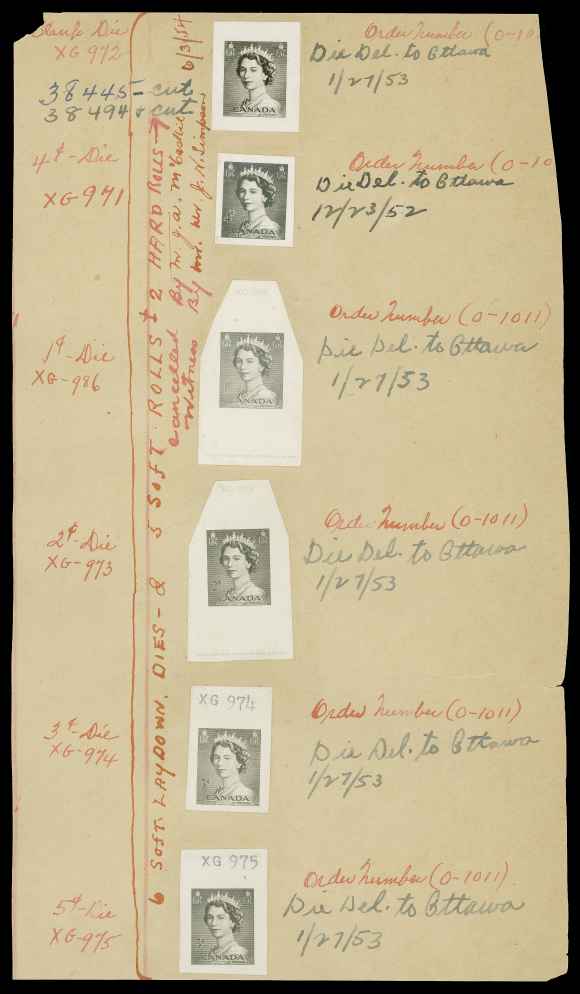 Die
XG 972
38445 - cut
38494 & cut
Order Number (0-10
Die Del. to Ottawa
1/27/53
CANADA
4¢ - Die
XG-971
Order Number (0-10
Die Del. to Ottawa
12/23/52
CANADA
1¢ - Die
XG-986
Order Number (0-1011)
Die Del. to Ottawa
1/27/53
CANADA
2¢ - Die
XG-973
Order Number (0-1011)
Die Del. to Ottawa
1/27/53
CANADA
3¢ - Die
XG-974
XG 974
Order Number (0-1011)
Die Del. to Ottawa
1/27/53
CANADA
5¢ - Die
XG-975
XG 975
Order Number (0-1011)
Die Del. to Ottawa
1/27/53
CANADA
6 SOFT LAYDOWN. DIES - & 5 SOFT. ROLLS & 2 HARD ROLLS
Cancelled By Mr. J. A. 6/3/54
Witness By Mr. Wm. J. H. Simpson